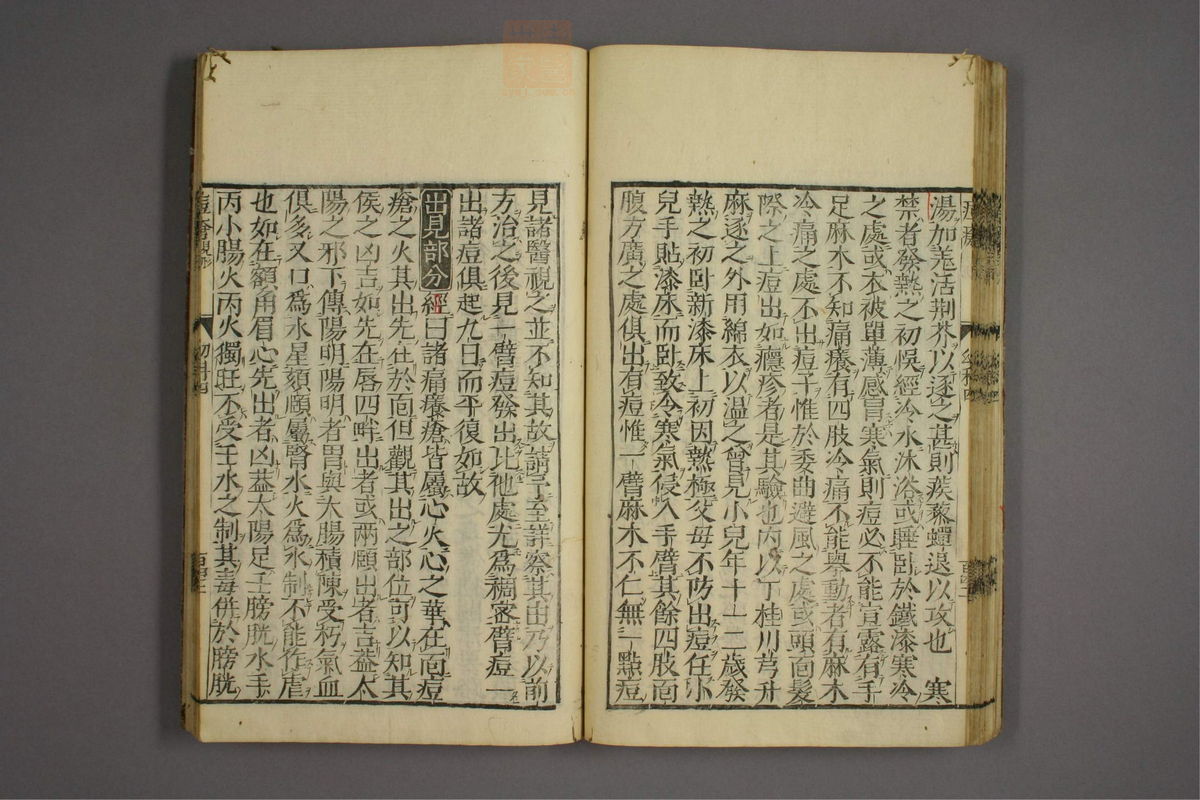 湯加羗活荆芥以逐之甚則蒺藜蟬退以攻也　寒
禁者發熱之初悞經冷水沐浴或睡卧於鐵漆寒冷
之處或衣被單薄感冒寒氣則痘必不能宣露有手
足麻木不知痛癢有四肢冷痛不能舉動者有麻木
冷痛之處不出痘子惟於委曲避風之處或頭靣髮
際之上痘出如癮疹者是其驗也内以丁桂川芎升
麻逐之外用綿衣以温之曾見小兒年十一二歲發
熱之初卧新漆床上初因熱極父母不防出痘任小
兒手貼漆床而卧致令寒氣侵入手臂其餘四肢靣
腹方廣之處俱出有痘惟一臂麻木不仁無一㸃痘
見諸醫視之並不知其故請予至詳察其由乃以前
方治之後見一臂痘發出比他處尤爲稠宻臂痘一
出諸痘俱起九日而平復如故
出見部分　經曰諸痛癢瘡皆屬心火心之華在靣痘
瘡之火其出先在於靣但觀其出之部位可以知其
侯之凶吉如先在唇四畔出者或兩頤出者吉葢太
陽之邪下傳陽明陽明者胃與大腸積陳受朽氣血
俱多又口爲水星頦頤屬腎水火爲水制不能作虐
也如在額角眉心先出者凶葢太陽足壬膀胱水手
丙小腸火丙火獨旺不受壬水之制其毒併於膀胱
痘會見形
幼科四